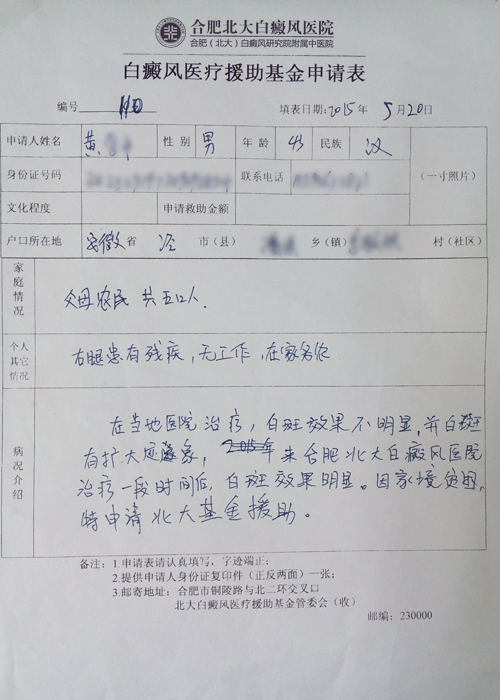 合肥北大白癜风医院
合肥（北大）白癜风研究院附属中医院
白癜风医疗援助基金申请表
编号 填表日期:2015年 5月20日
申请人姓名 黄 性 别 男 年 龄 43 民族 汉
身份证号码 联系电话 （一寸照片）
文化程度 申请救助金额
户口所在地 安徽 省 泾 市（县） 乡（镇） 村（社区）
家庭情况 父母农民 共五口人.
个人其它情况 右腿患有残疾，无工作，在家务农
病况介绍
在当地医院治疗，白斑效果不明显，并白斑
有扩大迹象，2015年来合肥北大白癜风医院
治疗一段时间后，白斑效果明显。因家境贫困，
特申请北大基金援助。
备注：1.申请表请认真填写，字迹端正；
2.提供申请人身份证复印件（正反两面）一张；
3.邮寄地址：合肥市铜陵路与北二环交叉口
北大白癜风医疗援助基金管委会（收）
邮编：230000